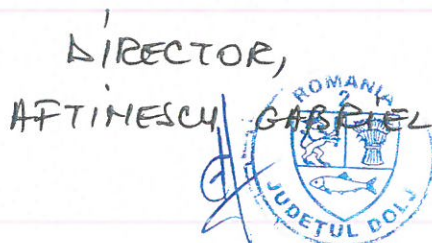 DIRECTOR,
AFTIMESCU GABRIEL
ROMANIA
2
JUDETUL DOLJ